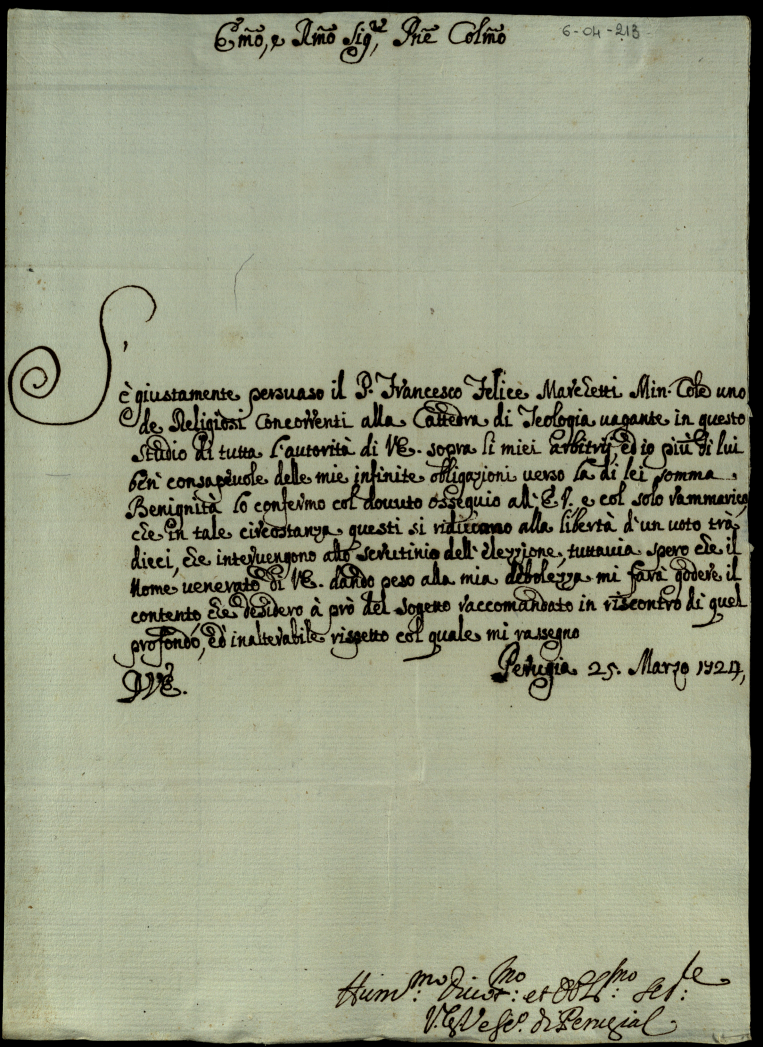 Em̃o, e Rm̃o Sig.r, Pñe Colm̃o
6-04-213
S'
è giustamente persuaso il P. Francesco Felice Marchetti Min. Cole uno
de Religiosi Concorrenti alla Cattedra di Teologia vagante in questo
studio di tutta l'autorità di VE. sopra li miei arbitrij, ed io più di lui
ben consapevole delle mie infinite obligazioni verso la di lei somma
Benignità lo confermo col dovuto ossequio all'E.V. e col solo rammarico,
che in tale circostanza questi si riducano alla libertà d'un voto trà
dieci, che intervengono allo scrutinio dell'elezzione, tuttavia spero che il
Nome venerato di VE. dando peso alla mia debolezza mi farà godere il
contento che desidero à prò del sogetto raccomandato in riscontro di quel
profondo, ed inalterabile rispetto col quale mi rassegno
Perugia 25. Marzo 1724,
D VE.
Hum.mo Divot.mo: et Obl.mo: Ser.le:
V. Vesc.o di Perugia